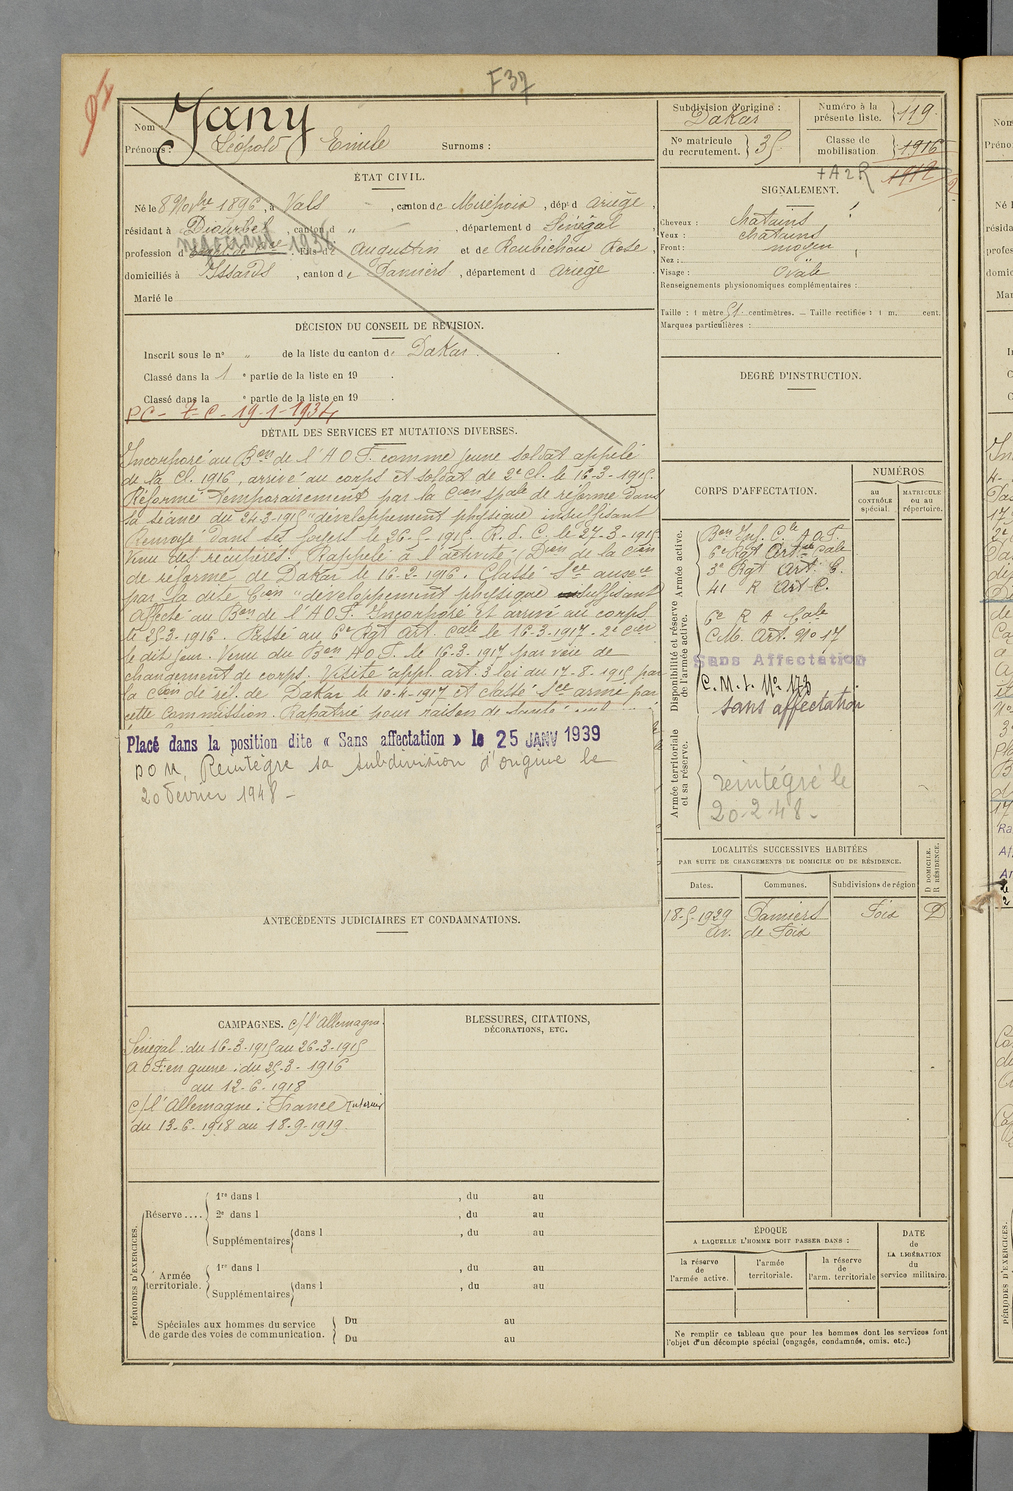 F37
Nom : Jany
Prénoms : Léopold Emile Surnoms :
ÉTAT CIVIL.
Né le 8 Novbre 1896, à Vals, canton de Mirepoix, dépt d Ariège,
résidant à Diourbel, canton d „ , département d Sénégal,
négociant 1934
profession d , fils de Augustin et de Roubichou Rose,
domiciliés à Issards, canton de Pamiers, département d Ariège
Marié le
DÉCISION DU CONSEIL DE RÉVISION.
Inscrit sous le n° „ de la liste du canton de Dakar.
Classé dans la 1 e partie de la liste en 19 .
Classé dans la e partie de la liste en 19 .
PC - t-C - 19-1-1934
DÉTAIL DES SERVICES ET MUTATIONS DIVERSES.
Incorporé au Bon de l'A O F. comme jeune soldat appelé
de la Cl. 1916, arrivé au corps et soldat de 2e cl. le 16-3-1915.
Réformé temporairement par la Con spale de réforme dans
sa séance du 24-3-1915 "développement physique insuffisant
Renvoyé dans ses foyers le 26-5-1915. R. d. C. le 27-3-1915
Venu des récupérés. Rappelé à l'activité Don de la Con
de réforme de Dakar le 16-2-1916. Classé Sce auxre
par la dite Con "développement physique insuffisant
Affecté au Bon de l'A O F. Incorporé et arrivé au corps
le 25-3-1916. Passé au 6e Rgt Art. Cale le 16-3-1917 - 2e Con
le dit jour. Venu du Bon A O F. le 16-3-1917 par voie de
changement de corps. Visité appl. art. 3 loi du 17-8-1915 par
la Con de réf. de Dakar le 10-4-1917 et classé Sce armé par
cette commission. Rapatrié pour raison de santé
Placé dans la position dite « Sans affectation » le 25 JANV 1939
DOM, Réintègre sa subdivision d'origine le
20 Février 1948 -
ANTÉCÉDENTS JUDICIAIRES ET CONDAMNATIONS.
CAMPAGNES. c/ l'Allemagne.
Sénégal : du 16-3-1915 au 26-3-1915
A O F. en guerre : du 25-3-1916
au 12-6-1918
c/ l'Allemagne : France Intérieur
du 13-6-1918 au 18-9-1919.
BLESSURES, CITATIONS,
DÉCORATIONS, ETC.
PÉRIODES D'EXERCICES.
Réserve.... 1re dans l , du au
2e dans l , du au
Supplémentaires dans l , du au
Armée territoriale. 1re dans l , du au
Supplémentaires dans l , du au
Spéciales aux hommes du service
de garde des voies de communication. Du au
Du au
Subdivision d'origine :
Dakar
Numéro à la
présente liste. 119
N° matricule
du recrutement. 35
Classe de
mobilisation. 1916
+ A 2 R 1912
SIGNALEMENT.
Cheveux : châtains
Yeux : châtains
Front : moyen
Nez :
Visage : Ovale
Renseignements physionomiques complémentaires :
Taille : 1 mètre 51 centimètres. — Taille rectifiée : 1 m. cent.
Marques particulières :
DEGRÉ D'INSTRUCTION.
CORPS D'AFFECTATION.
NUMÉROS
au
CONTRÔLE
spécial.
MATRICULE
ou au
répertoire.
Armée active.
Bon Inf. Cle A O F.
6e Rgt Artie Cale
3e Rgt Art. C.
41 R Art C.
Disponibilité et réserve
de l'armée active.
6e R A Cale
C.M. Art. No 17
Sans Affectation
C.M.I. No 173
sans affectation
Armée territoriale
et sa réserve.
réintégré le
20-2-48 -
LOCALITÉS SUCCESSIVES HABITÉES
PAR SUITE DE CHANGEMENTS DE DOMICILE OU DE RÉSIDENCE.
Dates. Communes. Subdivisions de région
D DOMICILE.
R RÉSIDENCE.
18-5-1929 Pamiers Foix D
av. de Foix
ÉPOQUE
A LAQUELLE L'HOMME DOIT PASSER DANS :
la réserve
de
l'armée active.
l'armée
territoriale.
la réserve
de
l'arm. territoriale
DATE
de
LA LIBÉRATION
du
service militaire.
Ne remplir ce tableau que pour les hommes dont les services font
l'objet d'un décompte spécial (engagés, condamnés, omis, etc.)